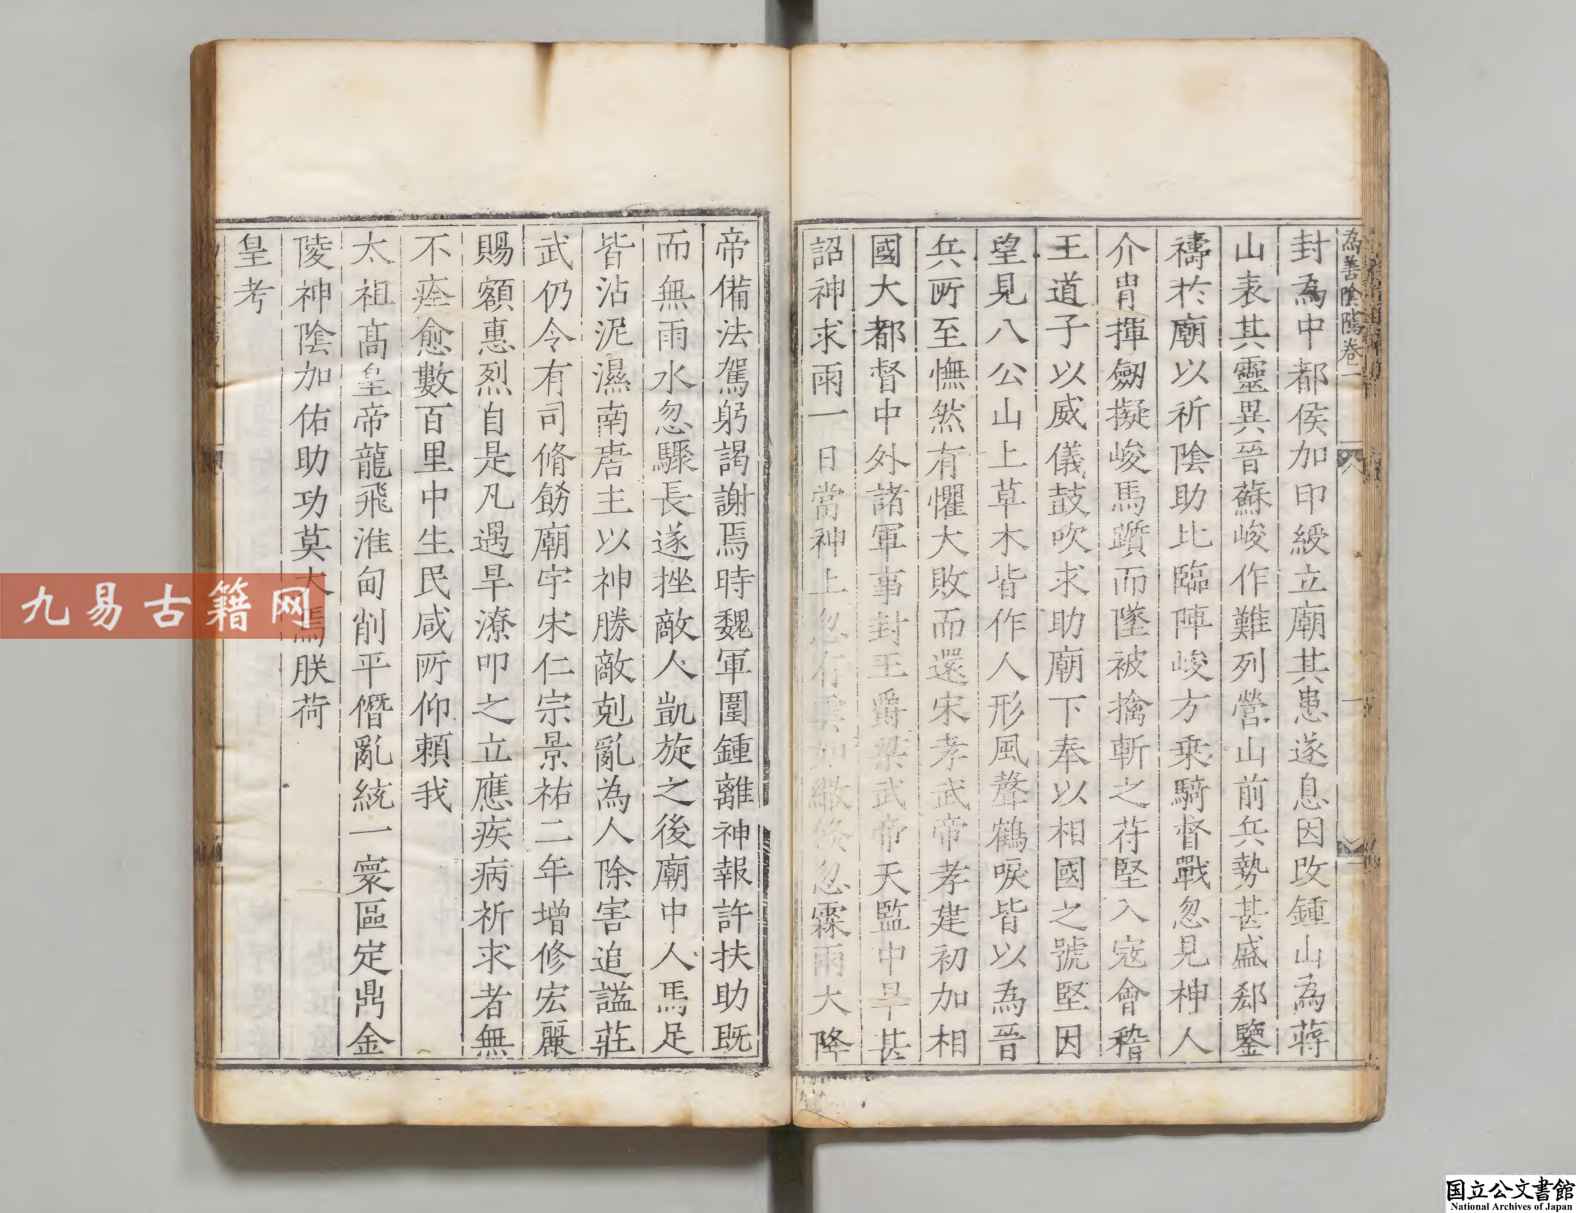 為善陰隲卷二
封為中都侯加印綬立廟其患遂息因改鍾山為蔣
山表其靈異晉蘇峻作難列營山前兵勢甚盛郄鑒
禱於廟以祈陰助比臨陣峻方乗騎督戰忽見神人
介胄揮劒擬峻馬躓而墜被擒斬之苻堅入寇會稽
王道子以威儀鼓吹求助廟下奉以相國之號堅因
望見八公山上草木皆作人形風聲鶴唳皆以為晉
兵所至憮然有懼大敗而還宋孝武帝孝建初加相
國大都督中外諸軍事封王爵梁武帝天監中旱甚
詔神求雨一日當神上忽有雲如繖倏忽霖雨大降
帝備法駕躬謁謝焉時魏軍圍鍾離神報許扶助既
而無雨水忽驟長遂挫敵人凱旋之後廟中人馬足
皆沾泥濕南唐主以神勝敵剋亂為人除害追謚莊
武仍令有司脩餝廟宇宋仁宗景祐二年增修宏麗
賜額惠烈自是凡遇旱潦叩之立應疾病祈求者無
不痊愈數百里中生民咸所仰頼我
太祖髙皇帝龍飛淮甸削平僭亂統一寰區定鼎金
陵神陰加佑助功莫大焉朕荷
皇考
九易古籍网
国立公文書館
National Archives of Japan